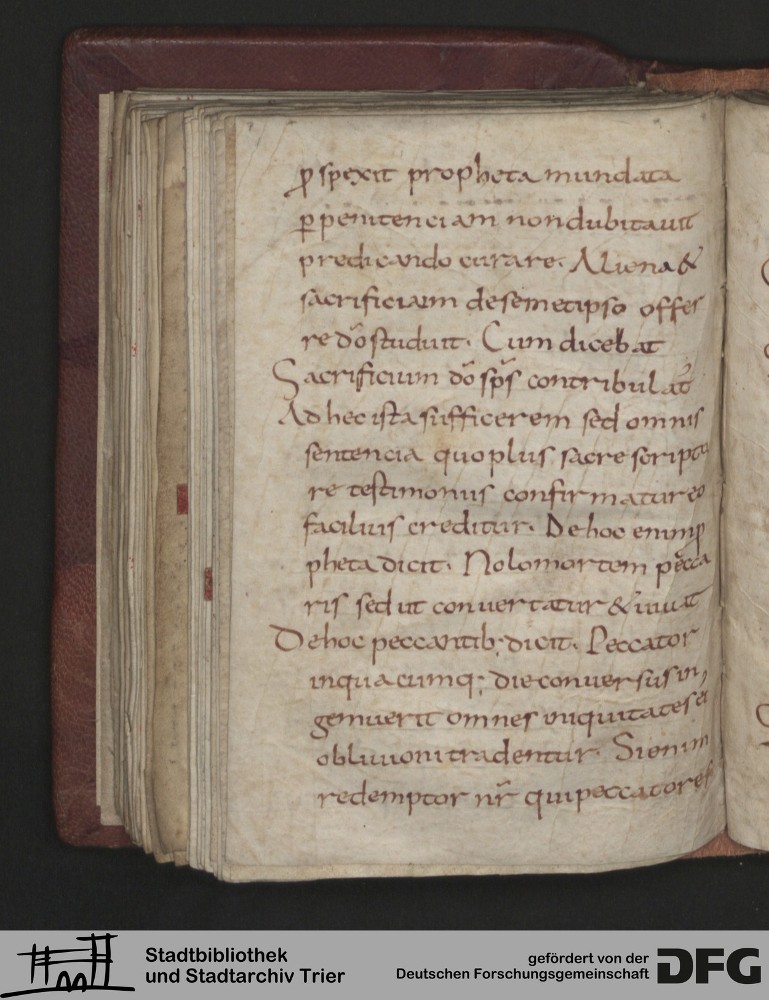 ꝓspexit propheta mundata
ꝑpenitenciam non dubitauit
predicando curare. Aliena &
sacrificium desemetipso offer
re dõ studuit. Cum dicebat
Sacrificium dõ sp̃s contribulat̃
Ad hec ista sufficerem sed omnis
sentencia quo plus sacre scriptu
re testimoniis confirmatur eo
facilius creditur. De hoc enim ꝓ
pheta dicit. Nolo mortem pecca
ris sed ut conuertatur & uiuat
De hoc peccantib; dicit. Peccator
inquacumq; die conuersus in
gemuerit omnes iniquitates ei
obliuioni tradentur. Si enim
redemptor nr̃ qui peccatores
Stadtbibliothek
und Stadtarchiv Trier
gefördert von der
Deutschen Forschungsgemeinschaft
DFG